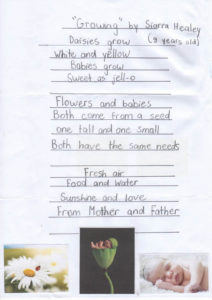 "Growing" by Sierra Healey
Daisies grow (9 years old)
White and yellow
Babies grow
Sweet as jell-o
Flowers and babies
Both come from a seed
one tall and one small
Both have the same needs
Fresh air
Food and Water
Sunshine and love
From Mother and Father